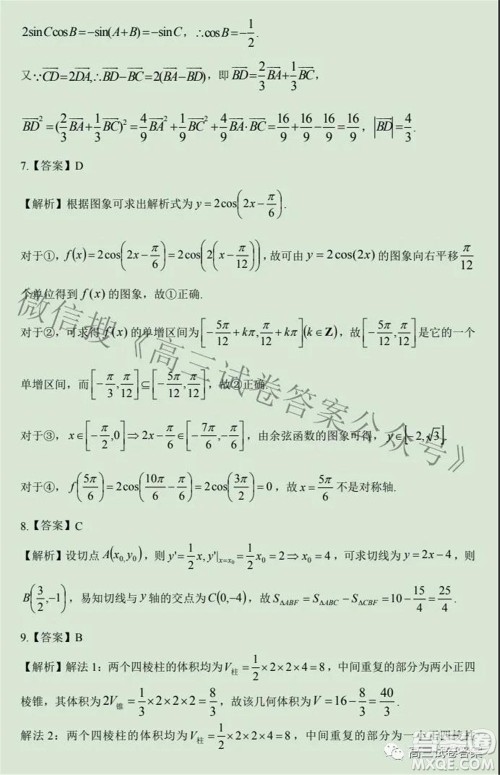 2sinCcosB=−sin(A+B)=−sinC，∴cosB=−1/2.
又∵CD=2DA,∴BD−BC=2(BA−BD)，即BD=2/3BA+1/3BC，
BD²=(2/3BA+1/3BC)²=4/9BA²+1/9BC²+4/9BA·BC=16/9+16/9−16/9=16/9，|BD|=4/3.
7.【答案】D
【解析】根据图象可求出解析式为y=2cos(2x−π/6).
对于①，f(x)=2cos(2x−π/6)=2cos(2(x−π/12))，故可由y=2cos(2x)的图象向右平移π/12
个单位得到f(x)的图象，故①正确.
对于②，可求得f(x)的单增区间为[−5π/12+kπ,π/12+kπ](k∈Z)，故[−5π/12,π/12]是它的一个
单增区间，而[−π/3,π/12]⊆[−5π/12,π/12]，故②正确.
对于③，x∈[−π/2,0]⇒2x−π/6∈[−7π/6,−π/6]，由余弦函数的图象可得，y∈[−2,√3].
对于④，f(5π/6)=2cos(10π/6−π/6)=2cos(3π/2)=0，故x=5π/6不是对称轴.
8.【答案】C
【解析】设切点A(x₀,y₀)，则y'=1/2x,y'|x=x₀=1/2x₀=2⇒x₀=4，可求切线为y=2x−4，则
B(3/2,−1)，易知切线与y轴的交点为C(0,−4)，故S△ABF=S△ABC−S△CBF=10−15/4=25/4.
9.【答案】B
【解析】解法1：两个四棱柱的体积均为V柱=1/2×2×2×4=8，中间重复的部分为两小正四
棱锥，其体积为2V锥=1/3×2×2×2=8/3，故该几何体积为V=16−8/3=40/3.
解法2：两个四棱柱的体积均为V柱=1/2×2×2×4=8，中间重复的部分为一个正四棱柱
微信搜《高三试卷答案公众号》
高三试卷答案
MXQE.COM